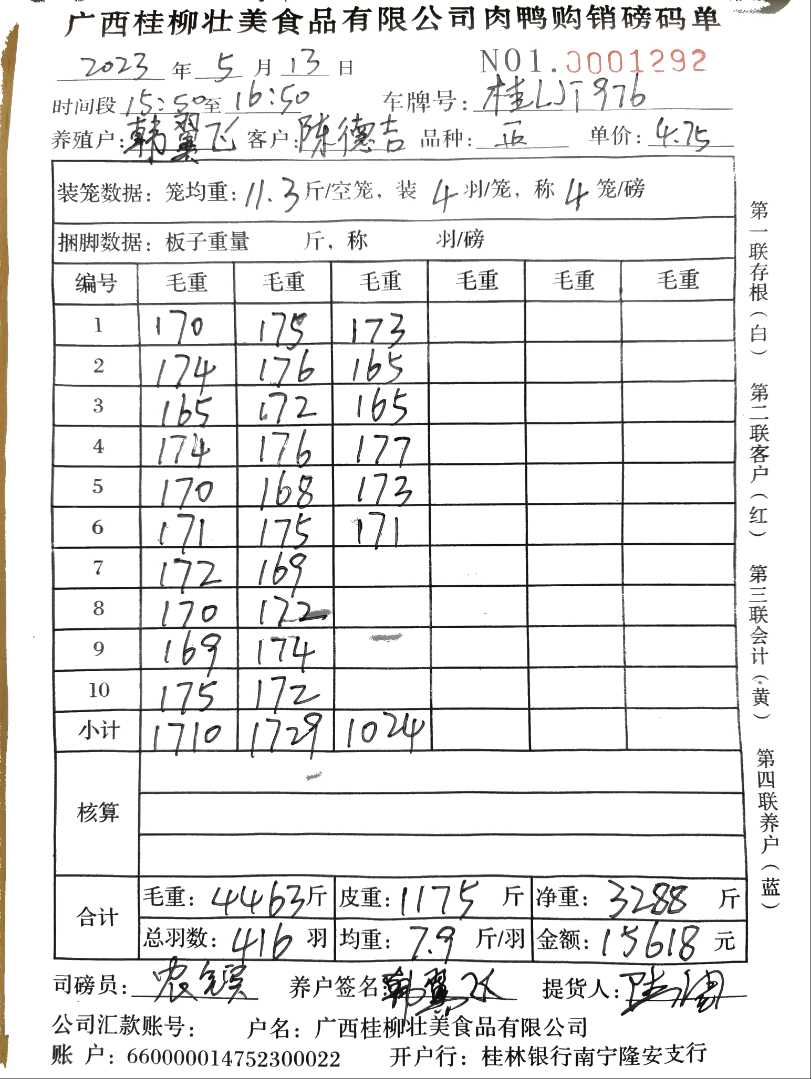 广西桂柳壮美食品有限公司肉鸭购销磅码单
2023 年 5 月 13 日 NO1.0001292
时间段 15:50 至 16:50 车牌号: 桂LJT976
养殖户: 韩翼飞 客户: 陈德吉 品种: 正 单价: 4.75
装笼数据: 笼均重: 11.3 斤/空笼, 装 4 羽/笼, 称 4 笼/磅
捆脚数据: 板子重量 斤, 称 羽/磅
编号 毛重 毛重 毛重 毛重 毛重 毛重
1 170 175 173
2 174 176 165
3 165 172 165
4 174 176 177
5 170 168 173
6 171 175 171
7 172 169
8 170 172
9 169 174
10 175 172
小计 1710 1729 1024
核算
合计
毛重: 4463 斤 皮重: 1175 斤 净重: 3288 斤
总羽数: 416 羽 均重: 7.9 斤/羽 金额: 15618 元
司磅员: 养户签名: 韩翼飞 提货人:
公司汇款账号: 户名: 广西桂柳壮美食品有限公司
账 户: 660000014752300022 开户行: 桂林银行南宁隆安支行
第一联存根(白) 第二联客户(红) 第三联会计(黄) 第四联养户(蓝)